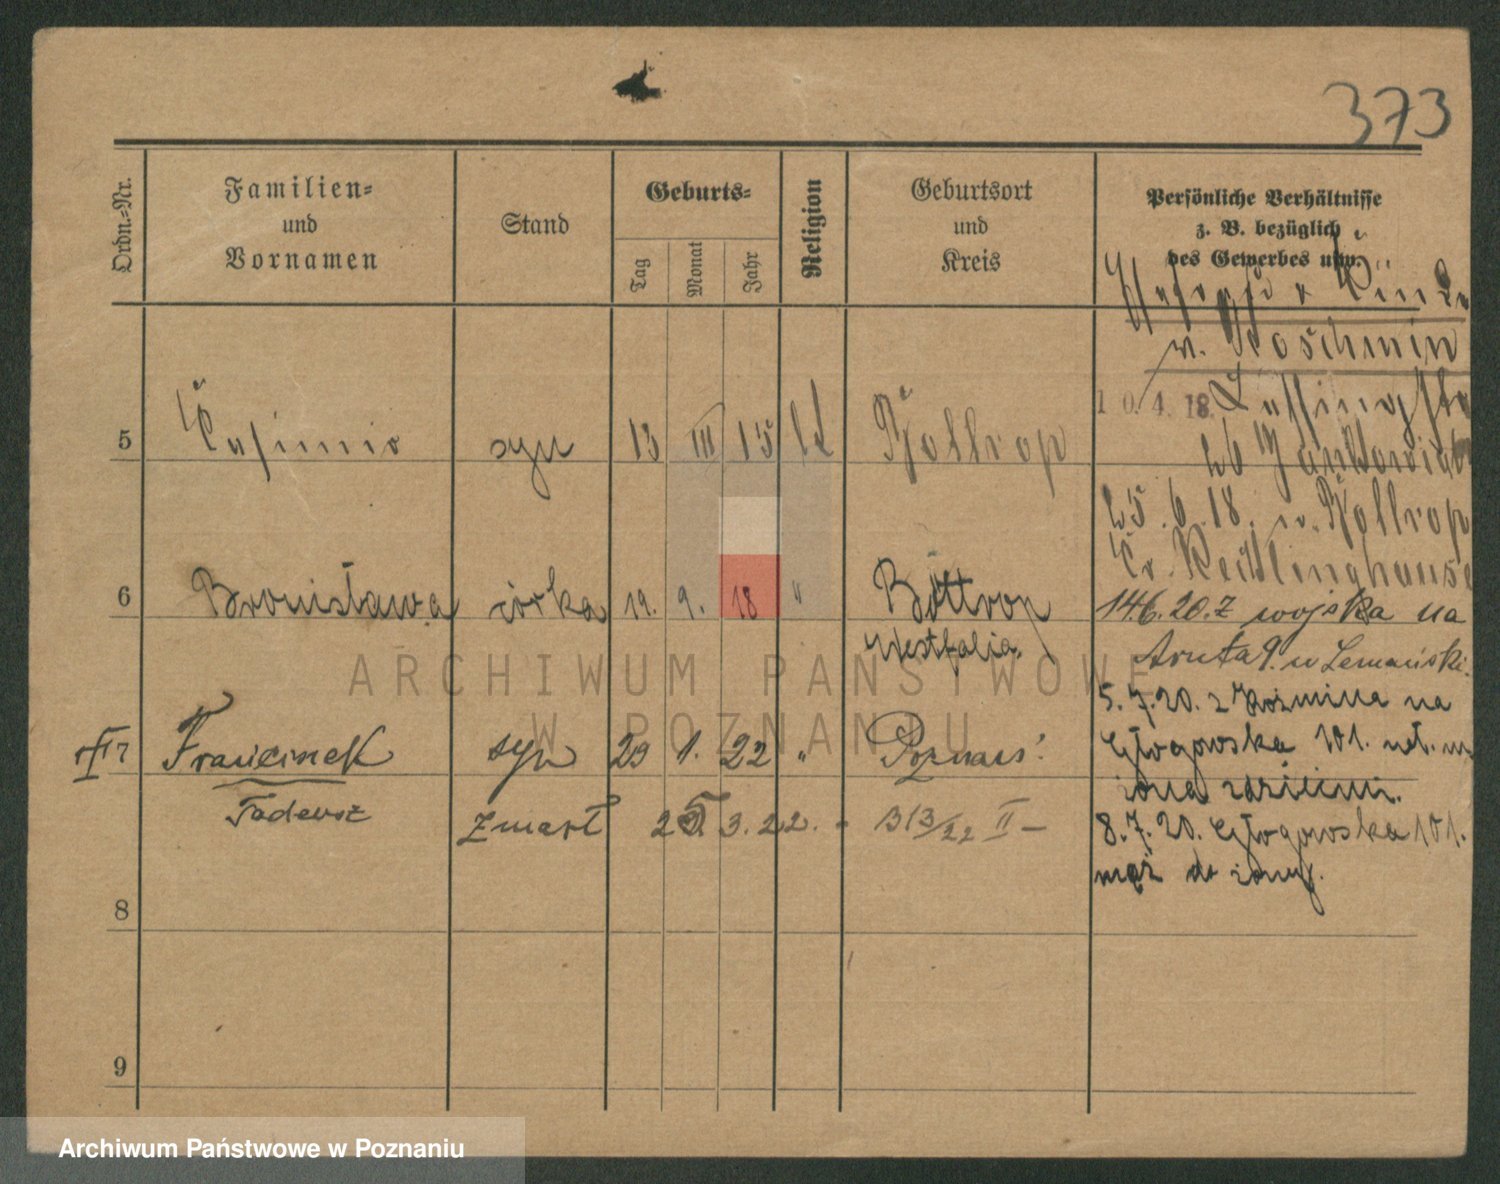 373
Ordn.=Nr.
Familien=
und
Vornamen
Stand
Geburts=
Tag
Monat
Jahr
Religion
Geburtsort
und
Kreis
Persönliche Verhältnisse
z. B. bezüglich
des Gewerbes usw.
w. Koschmin
10.4.18.
5 Casimir syn 13 III 15 Bottrop
25.6.18. Bottrop
Kr. Recklinghausen
6 Bronisława córka 19. 9. 18 " Bottrop
Westfalia.
14.6.20. Z wojska na
9. u Lemański
5.7.20. z Koźmina na
7 Franciszek syn 29 1. 22 " Poznań
Głogowska 101.
Tadeusz zmarł 25. 3. 22. - 313/22 II -
8.7.20. Głogowska 101.
mąż do żony.
8
9
ARCHIWUM PAŃSTWOWE
W POZNANIU
Archiwum Państwowe w Poznaniu